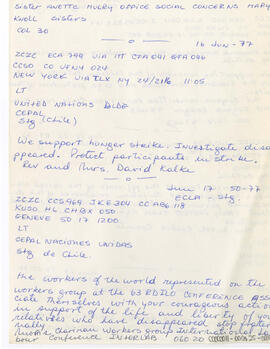 Sister Anette Mulry office social concerns Mary
Knoll Sisters
COL 30
16 Jun-77
ZCZC ECA 799 VIA ITT CFA 041 GFA 096
CCSO CO UFNY 024
NEW YORK VIA TLX NY 24/21/6 11:05
LT
UNITED NATIONS BLDG
CEPAL
Stg (Chile)
We support hunger strike. Investigate disa
ppeared. Protect participants in strike.
Rev and Mrs. David Kalke
Jun 17 - 50-77
ECLA - Stg.
ZCZC CCS969 JKE304 CCAB6118
KUSO HL CHBX 050
GENEVE 50 17 1200
LT
CEPAL NACIONES UNIDAS
Stg de Chile.
The workers of the world represented on the
workers group at the 63 RD ILO CONFERENCE ASSO
ciate themselves with your courageous action
in support of the life and liberty of your
relatives who have disappeared stop frater
nally chairman workers group International La
bour Conference INTERLAB